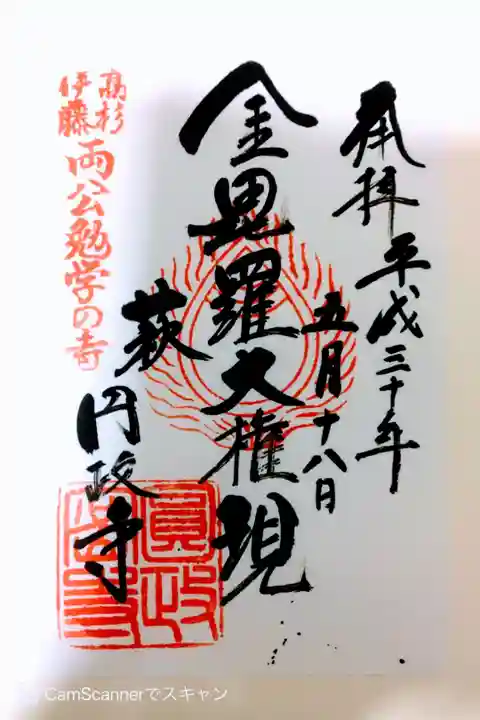 奉拝 平成三十年
五月十八日
金毘羅大権現
萩 円政寺
高杉
伊藤
両公勉学の寺
CamScannerでスキャン